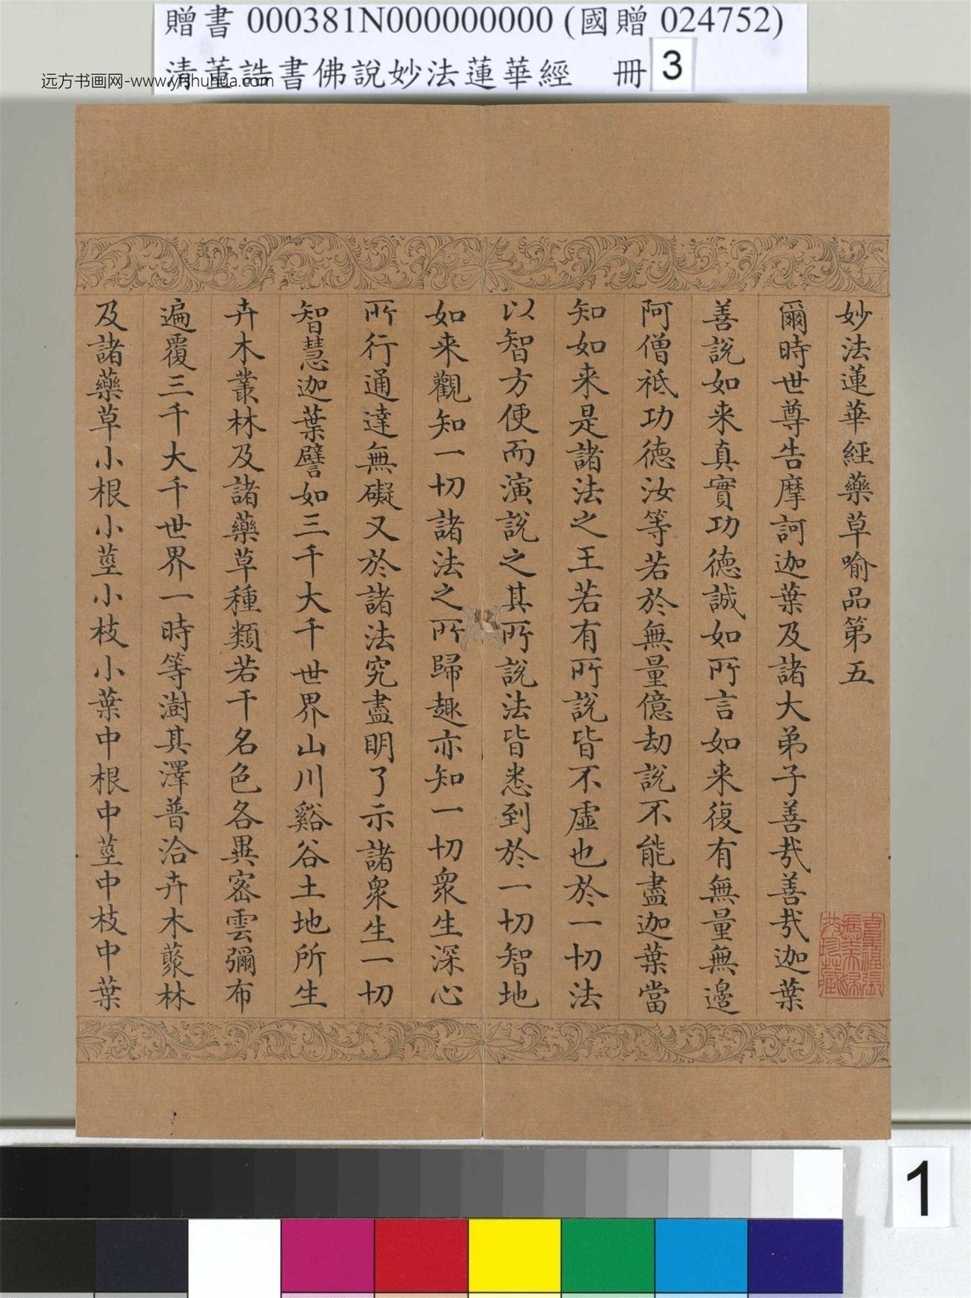 贈書 000381N000000000 (國贈 024752)
清董誥書佛說妙法蓮華經 冊 3
远方书画网-www.yfshuhua.com
妙法蓮華經藥草喻品第五
爾時世尊告摩訶迦葉及諸大弟子善哉善哉迦葉
善說如来真實功德誠如所言如来復有無量無邊
阿僧祇功德汝等若於無量億劫說不能盡迦葉當
知如来是諸法之王若有所說皆不虛也於一切法
以智方便而演說之其所說法皆悉到於一切智地
如来觀知一切諸法之所歸趣亦知一切衆生深心
所行通達無礙又於諸法究盡明了示諸衆生一切
智慧迦葉譬如三千大千世界山川谿谷土地所生
卉木叢林及諸藥草種類若干名色各異密雲彌布
遍覆三千大千世界一時等澍其澤普洽卉木藂林
及諸藥草小根小莖小枝小葉中根中莖中枝中葉
1